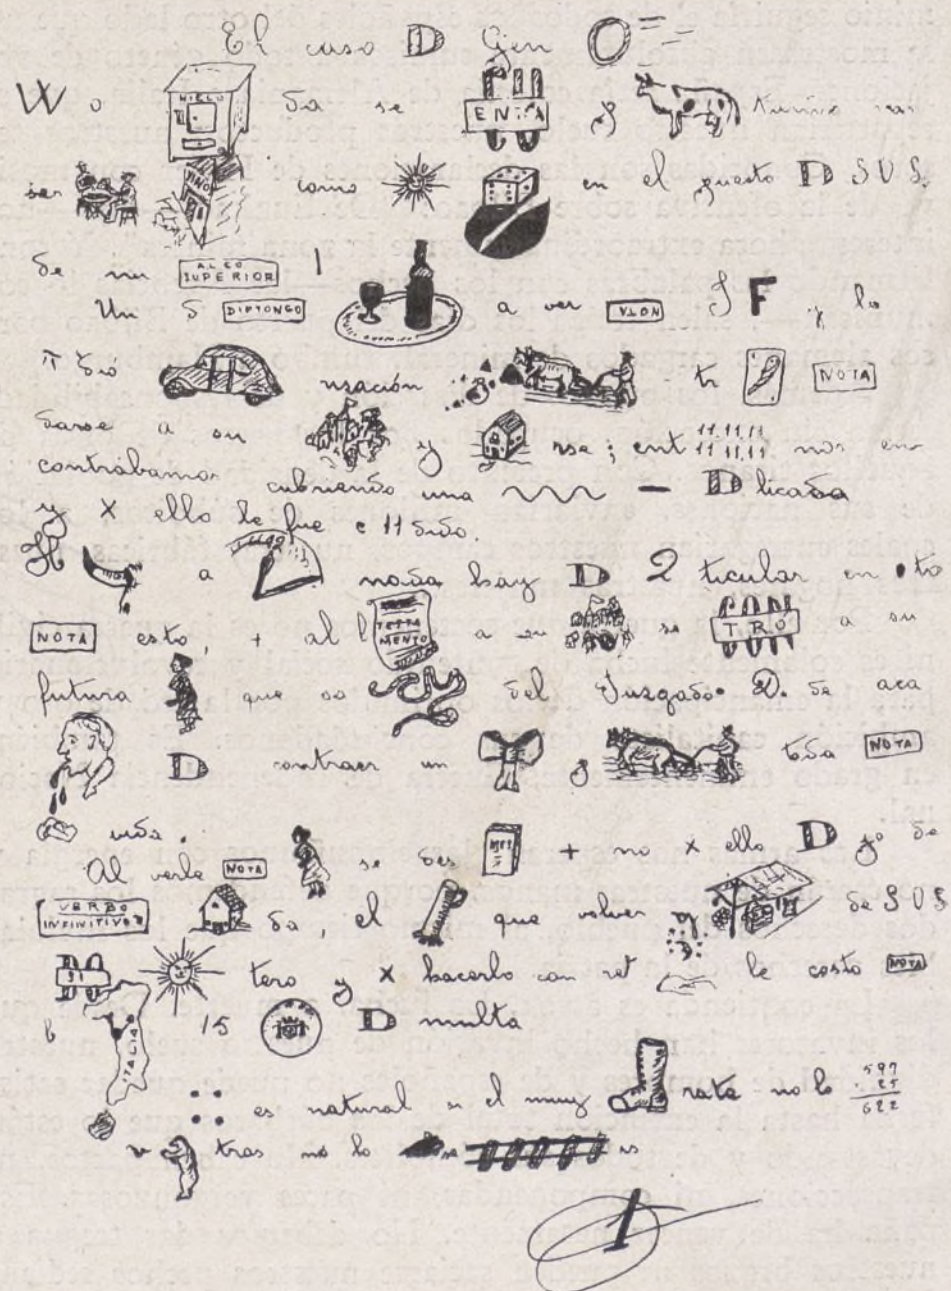 El caso D Gen O
W o HIELO da se ENTA y
ser VINO como en el puesto D SUS
de no ALGO SUPERIOR 1
Un S DIPTONGO a ver NOTA F y lo
π dió usación tr NOTA
darse a su y rsa; ent 11.11.11 11.11.11 nos en
contrábamos cubriendo una — D licada
y X ello le fue c 11 dido.
H a nada hay D 2 ticular en to
NOTA esto, + al l TESTAMENTO a su se TRO a su
futura que so del Juzgado D. de aca
D contraer un y toda NOTA
vida.
Al verle NOTA se des MES + no X ello D jº de
VERBO INFINITIVO da, el que volver de SUS
11 tero y X hacerlo con ret le costo NOTA
ITALIA 15 D multa
es natural si el muy rata no lo 597 25 622
tras no lo se is